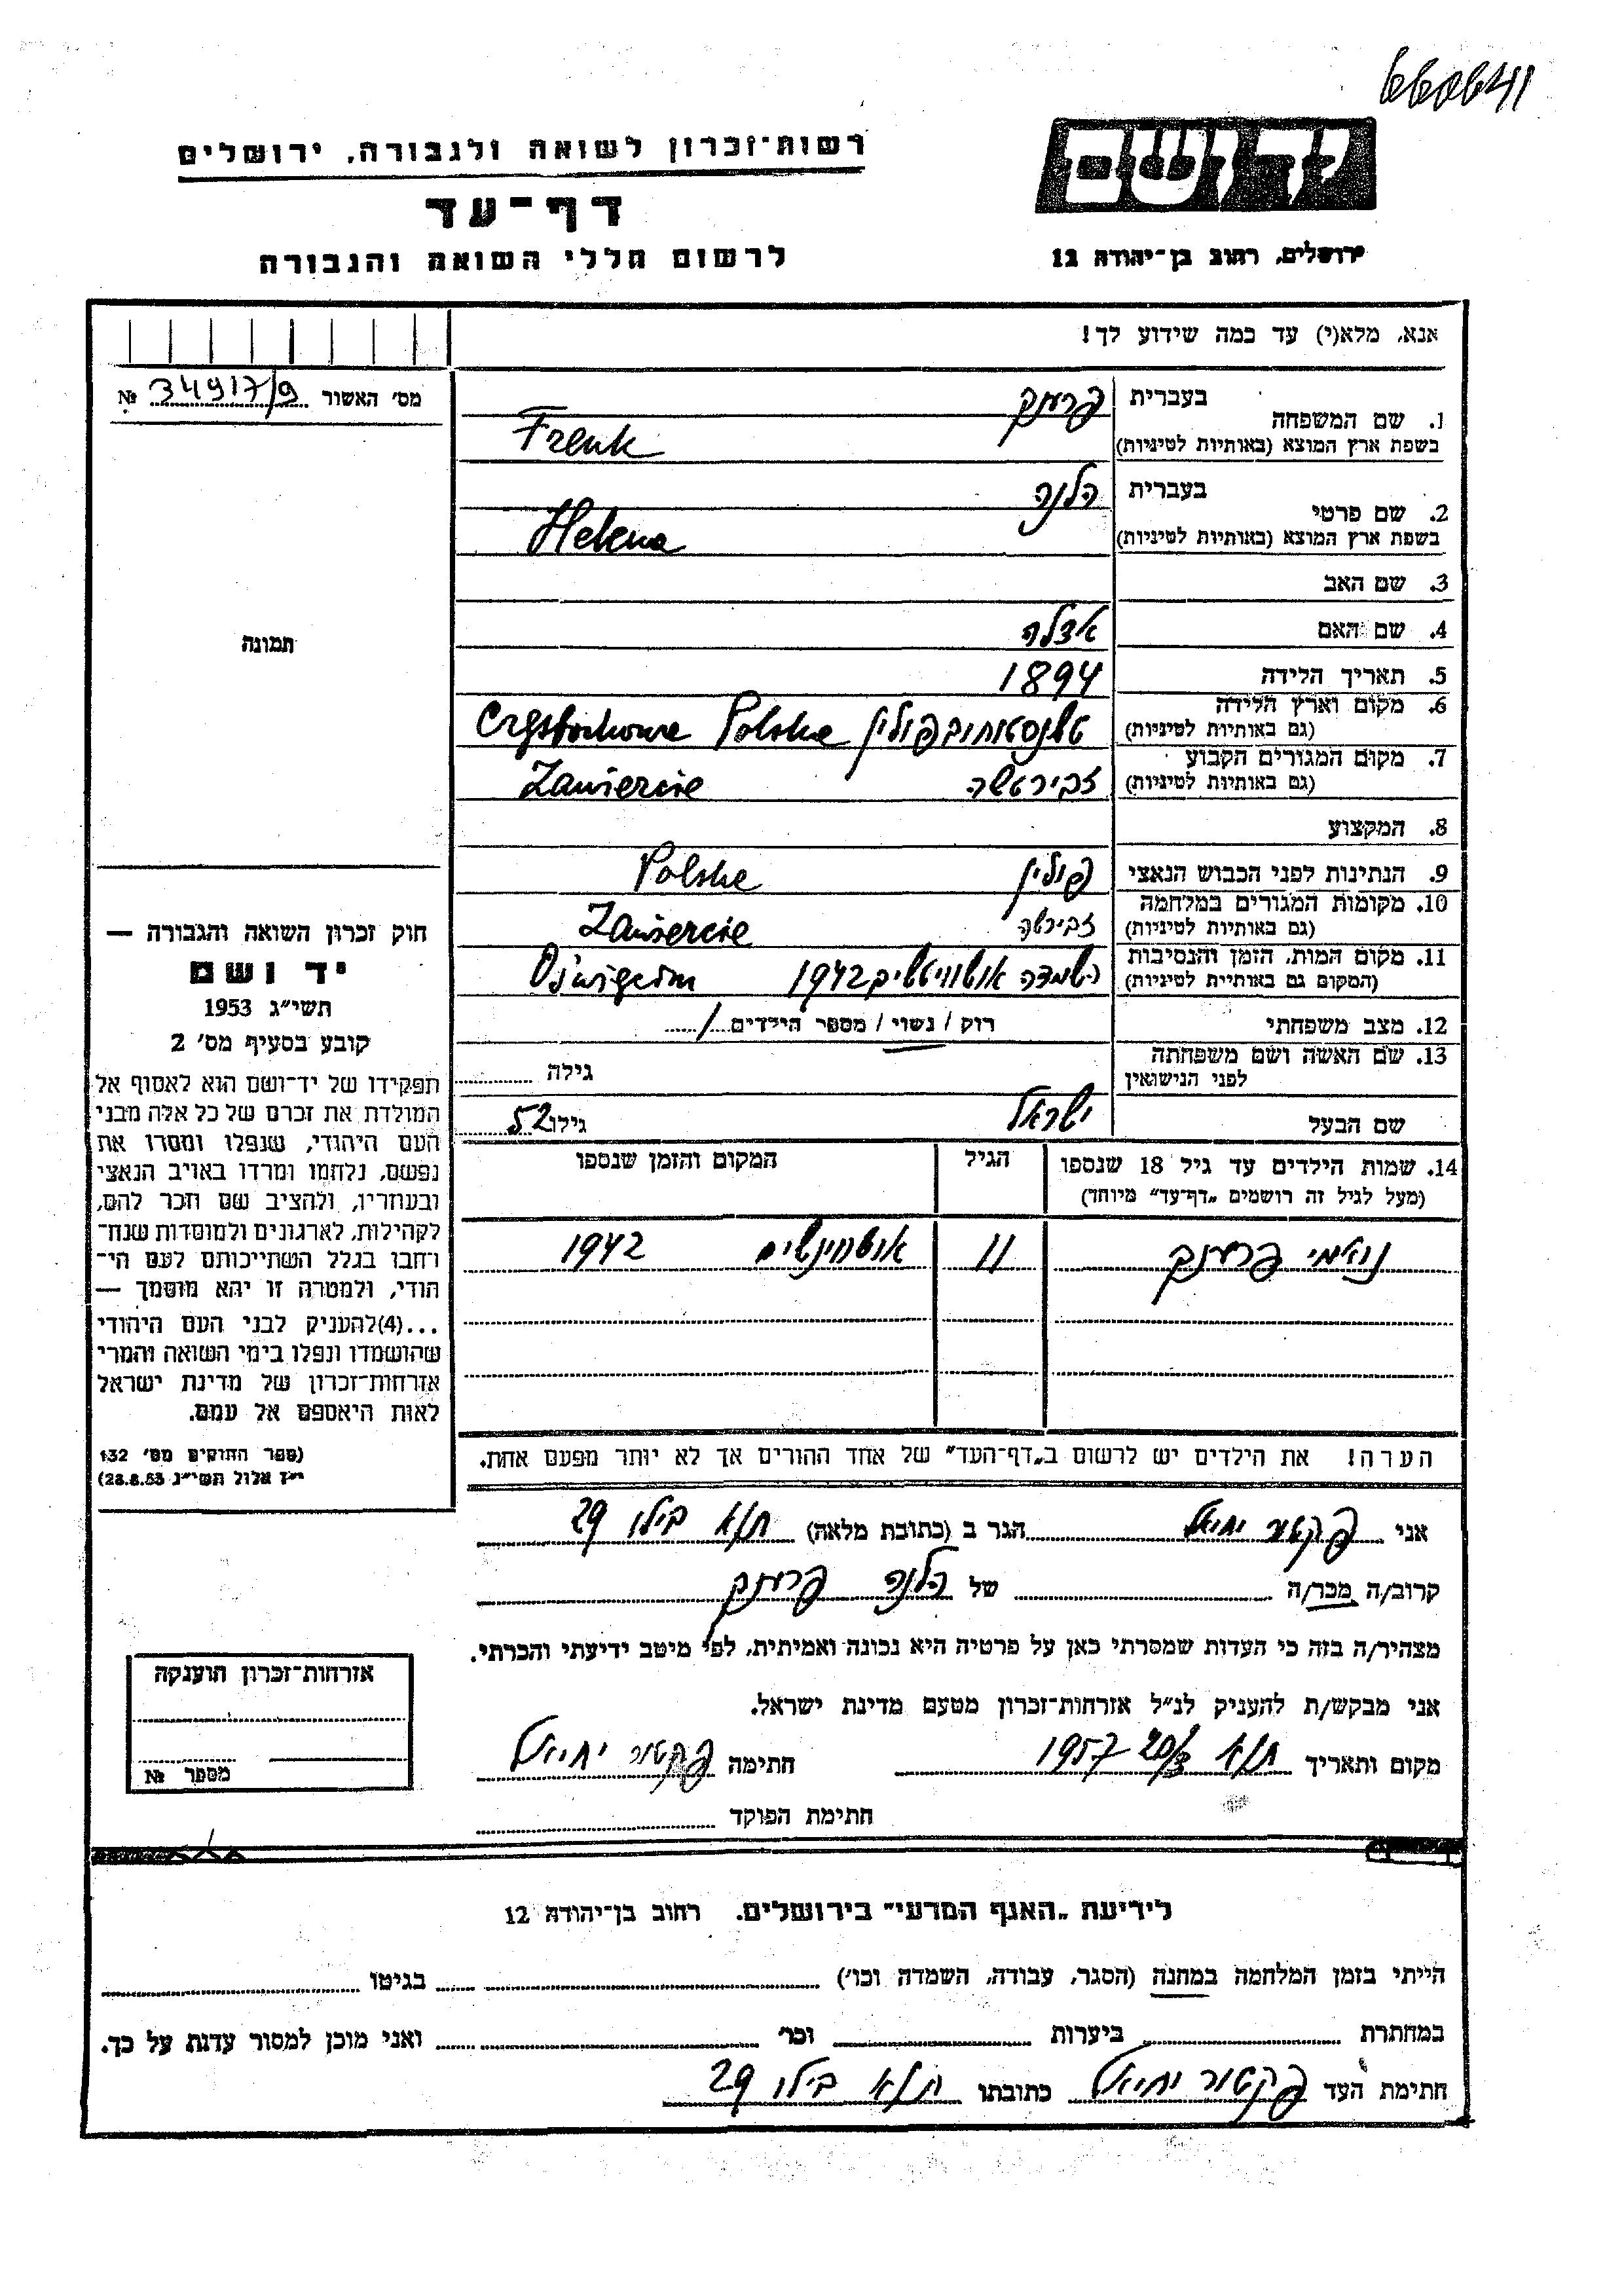 660641
רשות־זכרון לשואה ולגבורה, ירושלים
יד ושם
דף־עד
לרשום חללי השואה והגבורה
ירושלים, רחוב בן־יהודה 12
אנא, מלא(י) עד כמה שידוע לך!
מס' האשור 34917/9 №
1. שם המשפחה בעברית פרענק
בשפת ארץ המוצא (באותיות לטיניות) Frenk
2. שם פרטי בעברית הלנה
בשפת ארץ המוצא (באותיות לטיניות) Helena
3. שם האב
4. שם האם אדלה
תמונה
5. תאריך הלידה 1894
6. מקום וארץ הלידה
(גם באותיות לטיניות) פולין Polska
7. מקום המגורים הקבוע
(גם באותיות לטיניות) זבירטשה Zawiercie
8. המקצוע
9. הנתינות לפני הכבוש הנאצי פולין Polska
10. מקומות המגורים במלחמה
(גם באותיות לטיניות) זבירטה Zawiercie
11. מקום המות, הזמן והנסיבות
(המקום גם באותיית לטיניות) השמדה 1942 Oświęcim
12. מצב משפחתי רוק / נשוי / מספר הילדים 1
13. שם האשה ושם משפחתה
לפני הנישואין גילה
שם הבעל ישראל גילו 52
14. שמות הילדים עד גיל 18 שנספו הגיל המקום והזמן שנספו
(מעל לגיל זה רושמים „דף־עד” מיוחד)
נואמי פרענק 11 1942
הערה! את הילדים יש לרשום ב„דף־העד” של אחד ההורים אך לא יותר מפעם אחת.
חוק זכרון השואה והגבורה —
יד ושם
תשי״ג 1953
קובע בסעיף מס' 2
תפקידו של יד־ושם הוא לאסוף אל
המולדת את זכרם של כל אלה מבני
העם היהודי, שנפלו ומסרו את
נפשם, נלחמו ומרדו באויב הנאצי
ובעוזריו, ולהציב שם וזכר להם,
לקהילות, לארגונים ולמוסדות שנח־
רחבו בגלל השתייכותם לעם הי־
הודי, ולמטרה זו יהא מוסמך —
...(4)להעניק לבני העם היהודי
שהושמדו ונפלו בימי השואה והמרי
אזרחות־זכרון של מדינת ישראל
לאות היאספם אל עמם.
(ספר החוקים מס' 132
י״ז אלול תשי״ג 28.8.53)
אני פקטור יחיאל הגר ב (כתובת מלאה) ת״א בילו 29
קרוב/ה מכר/ה של הלנה פרענק
מצהיר/ה בזה כי העדות שמסרתי כאן על פרטיה היא נכונה ואמיתית, לפי מיטב ידיעתי והכרתי.
אני מבקש/ת להעניק לנ״ל אזרחות־זכרון מטעם מדינת ישראל.
מקום ותאריך ת״א 1957 חתימה פקטור יחיאל
חתימת הפוקד
אזרחות־זכרון הוענקה
מספר №
לידיעת „האגף המדעי” בירושלים. רחוב בן־יהודה 12
הייתי בזמן המלחמה במחנה (הסגר, עבודה, השמדה וכו') בגיטו
במחתרת ביערות וכו' ואני מוכן למסור עדות על כך.
חתימת העד פקטור יחיאל כתובתו ת״א בילו 29